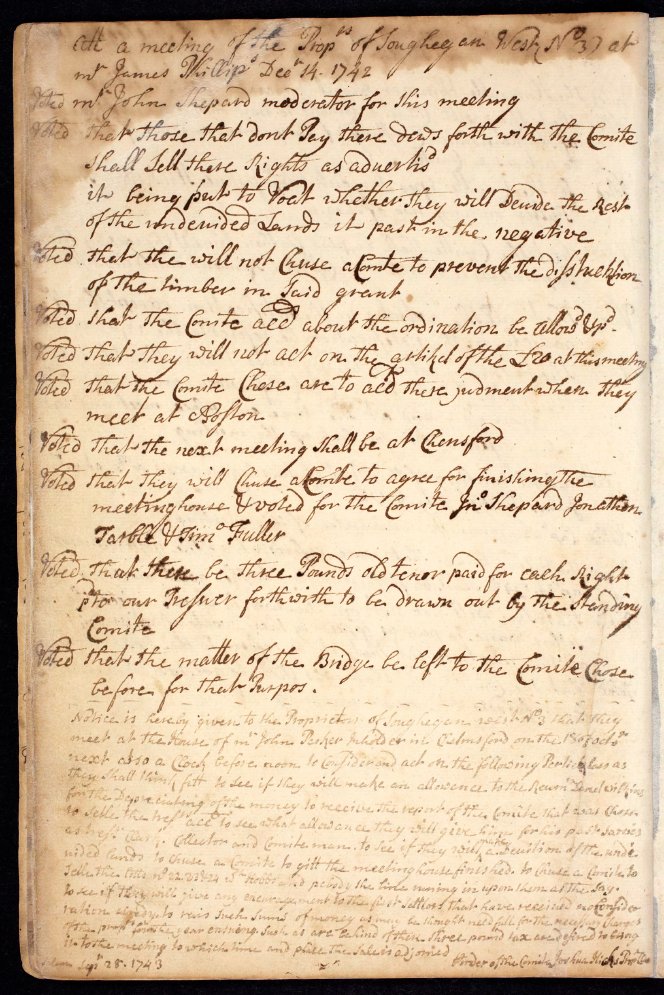 Att a meeting of the Prop^rs of Souhegan West N^o 3 at
m^r James Phillip^s Dec^r 14. 1742
Voted m^r John Shepard moderator for this meeting
Voted that those that dont Pay there dews forth with the Comite
shall Sell there Rights as advertis^d
it being put to Voet whether they will Devide the Rest
of the undevided Lands it past in the negative
Voted that the will not Chuse a Comte to prevent the disstruktion
of the timber in Said grant
Voted that the Comite acc^t about the ordination be allow^d & p^d.
Voted that they will not act on the artikel of the £20 at this meeting
Voted that the Comite Chose are to act there judment when they
meet at Boston
Voted that the next meeting shall be at Chensford
Voted that they will Chuse a Comte to agree for finishing the
meeting house & voted for the Comite Jn^o Shepard Jonathan
Tarbll & Tim^o Fuller
Voted that there be three Pounds old tenor paid for each Right
to our Tresuer forthwith to be drawn out by the standing
Comite
Voted that the matter of the Bridge be left to the Comite Chose
before for that Purpos.
Notice is hereby given to the Proprietors of Souhegan west N^o 3 that they
meet at the House of m^r John Parker Inholder in Chelmsford on the 18 of octo^r
next at 10 a Clock before noon to Consider and act on the following Perticulers as
they shall think fitt to see if they will make an allowence to the Reur^n Danel wilkins
for the Depreciating of the money to receive the report of the Comite that was Chosen
to Settle the tresu^rs acc^t to see what allowance they will give him for his past Services
as tresu^r Clar^k Collector and Comite man. to see if they will make a devition of the unde
vided lands to Chuse a Comite to gitt the meeting house finished. to Chuse a Comite to
Sell the Lots N^o 22.23 & 24 m^r Hobbs and pebody the time runing in upon them as they Say.
to see if they will give any encouragement to the first setlers that have received no consider
ration already to rais such Sums of money as may be thought needfull for the necessary Charges
of the prop^rs for the year ensuing such as are behind of there three pound tax are desired to bring
it to the meeting to which time and place the Sale is adjorned
Sep^r 28. 1743 P^r order of the Comite Joshua Hicks Prop^rs Cler